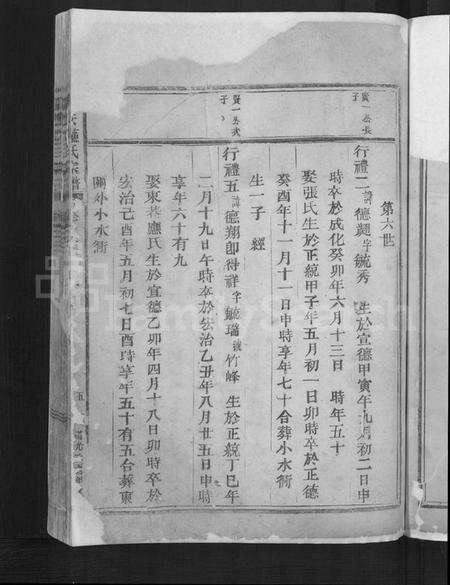 第六世
賢一公長子
行禮二諱德颺字毓秀 生於宣德甲寅年九月初二日申
時卒於成化癸卯年六月十三日 時年五十
娶張氏生於正統甲子年五月初一日卯時卒於正德
癸酉年十一月十一日申時享年七十合葬小水衕
生一子 經
賢一公次子
行禮五諱德翔即得祥字毓瑞號竹峰 生於正統丁巳年
二月十九日午時卒於宏治乙丑年八月廿五日申時
享年六十有九
娶東 應氏生於宣德乙卯年四月十八日卯時卒於
宏治己酉年五月初七日酉時享年五十有五合葬東
關外小水衕
氏宗譜